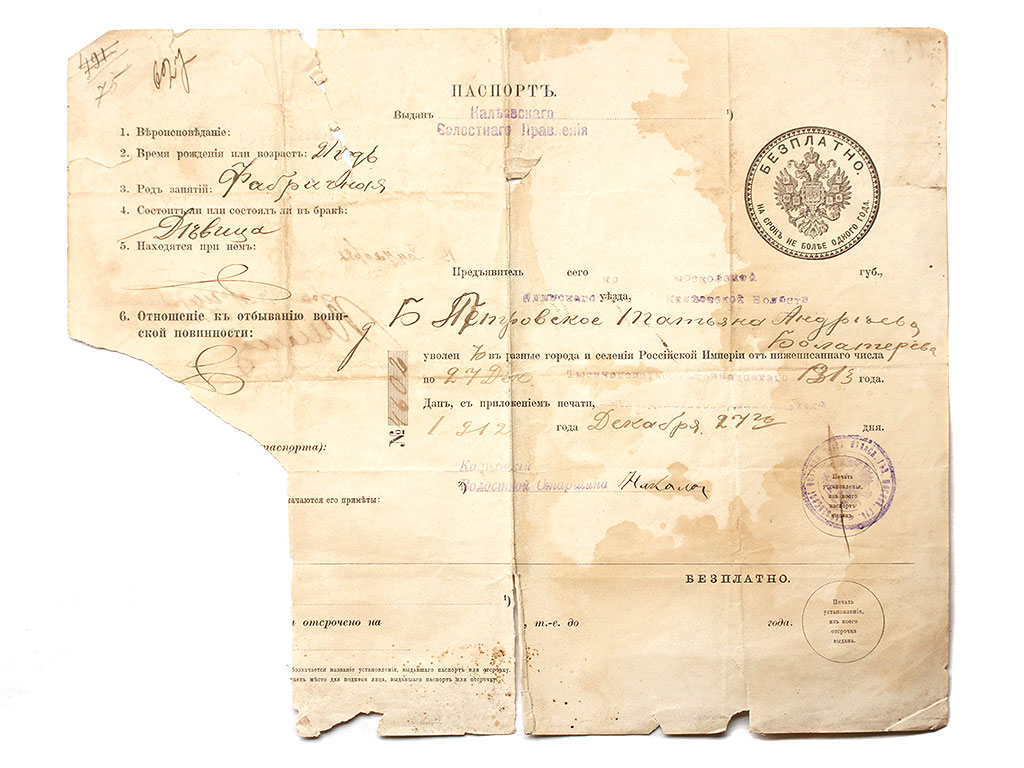 491
75
627
ПАСПОРТЪ.
Выданъ Кальевскаго 1)
Волостнаго Правленія
1. Вѣроисповѣданіе:
2. Время рожденія или возрастъ: 21 годъ
3. Родъ занятій: Фабричная
4. Состоитъ ли или состоялъ ли въ бракѣ:
Дѣвица
5. Находятся при немъ:
6. Отношеніе къ отбыванію воин-
ской повинности:
БЕЗПЛАТНО.
НА СРОКЪ НЕ БОЛѢЕ ОДНОГО ГОДА.
Предъявитель сего Московской губ.,
уѣзда, Волости
Д Б Петровское Татьяна Андрѣева
Болатерева
уволен Ъ въ разные города и селенія Россійской Имперіи отъ нижеписаннаго числа
по 27 Дек. Тысяча девятьсотъ тринадцатаго 1913 года.
Данъ, съ приложеніемъ печати,
1912 года Декабря 27го дня.
№ 4606
аспорта):
2) Волостной Старшина Николаи
начаются его примѣты:
Печать
установленія,
изъ коего
паспортъ
выданъ.
БЕЗПЛАТНО.
1)
отсрочено на , т.-е. до года.
Печать
установленія,
изъ коего
отсрочка
выдана.
Обозначается названіе установленія, выдавшаго паспортъ или отсрочку.
мѣсто для подписи лица, выдавшаго паспортъ или отсрочку.